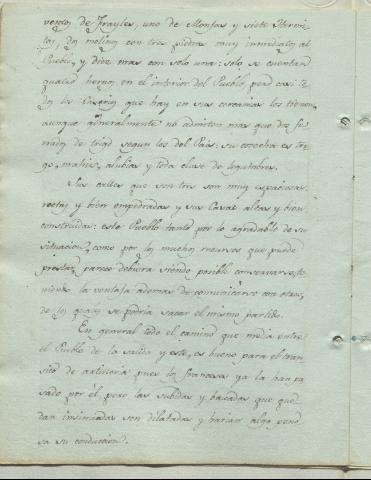 ventos de Frayles, uno de Monjas y siete Hermi-
tas, dos molinos con tres piedras muy inmediatos al
Pueblo, y diez mas con solo una: solo se cuentan
quatro hornos en el interior del Pueblo, pero casi to-
dos los Caserios que hay en sus cercanias los tienen
aunque generalmente no admiten mas que dos fa-
nadas de trigo segun los del Pais: su cosecha es tri-
go, mahiz, alubias y toda clase de legumbres.
Sus calles que son tres son muy espaciosas
rectas y bien empedradas y sus Casas altas y bien
construidas: este Pueblo tanto por lo agradable de su
situacion, como por los muchos recursos que puede
prestar, parece debiera siendo posible conservarse, te-
niendo la ventaja ademas de comunicarse con otros,
de los quales se podria sacar el mismo partido.
En general todo el camino que media entre
el Pueblo de la salida y este, es bueno para el tran-
sito de artilleria pues los franceses ya la han pa-
sado por él, pero las subidas y baxadas que que-
dan insinuadas son dilatadas y harian algo peno-
sa su conduccion.